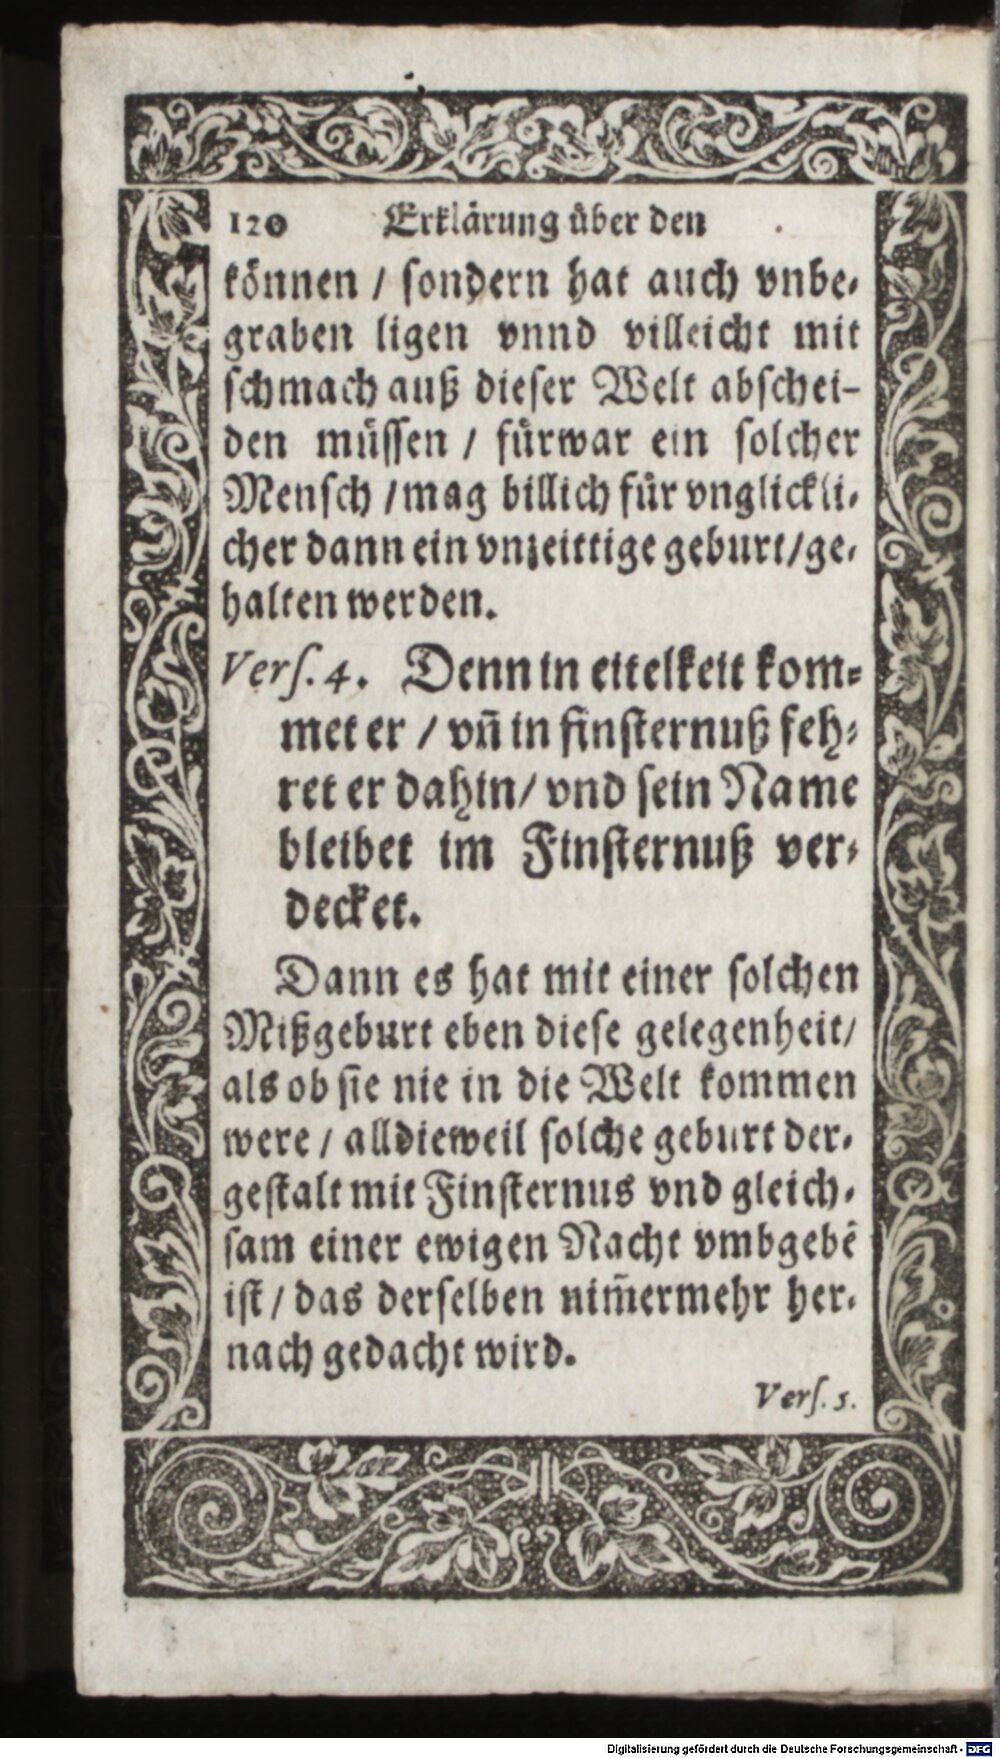 120 Erklärung über den
können / sondern hat auch vnbe-
graben ligen vnnd villeicht mit
schmach auß dieser Welt abschei-
den müssen / fürwar ein solcher
Mensch / mag billich für vnglickli-
cher dann ein vnzeittige geburt / ge-
halten werden.
Vers. 4. Denn in eitelkeit kom-
met er / vn̄ in finsternuß feh-
ret er dahin / vnd sein Name
bleibet im Finsternuß ver-
decket.
Dann es hat mit einer solchen
Mißgeburt eben diese gelegenheit /
als ob sie nie in die Welt kommen
were / alldieweil solche geburt der-
gestalt mit Finsternus vnd gleich-
sam einer ewigen Nacht vmbgebē
ist / das derselben nim̄ermehr her-
nach gedacht wird.
Vers. 5.
Digitalisierung gefördert durch die Deutsche Forschungsgemeinschaft - DFG